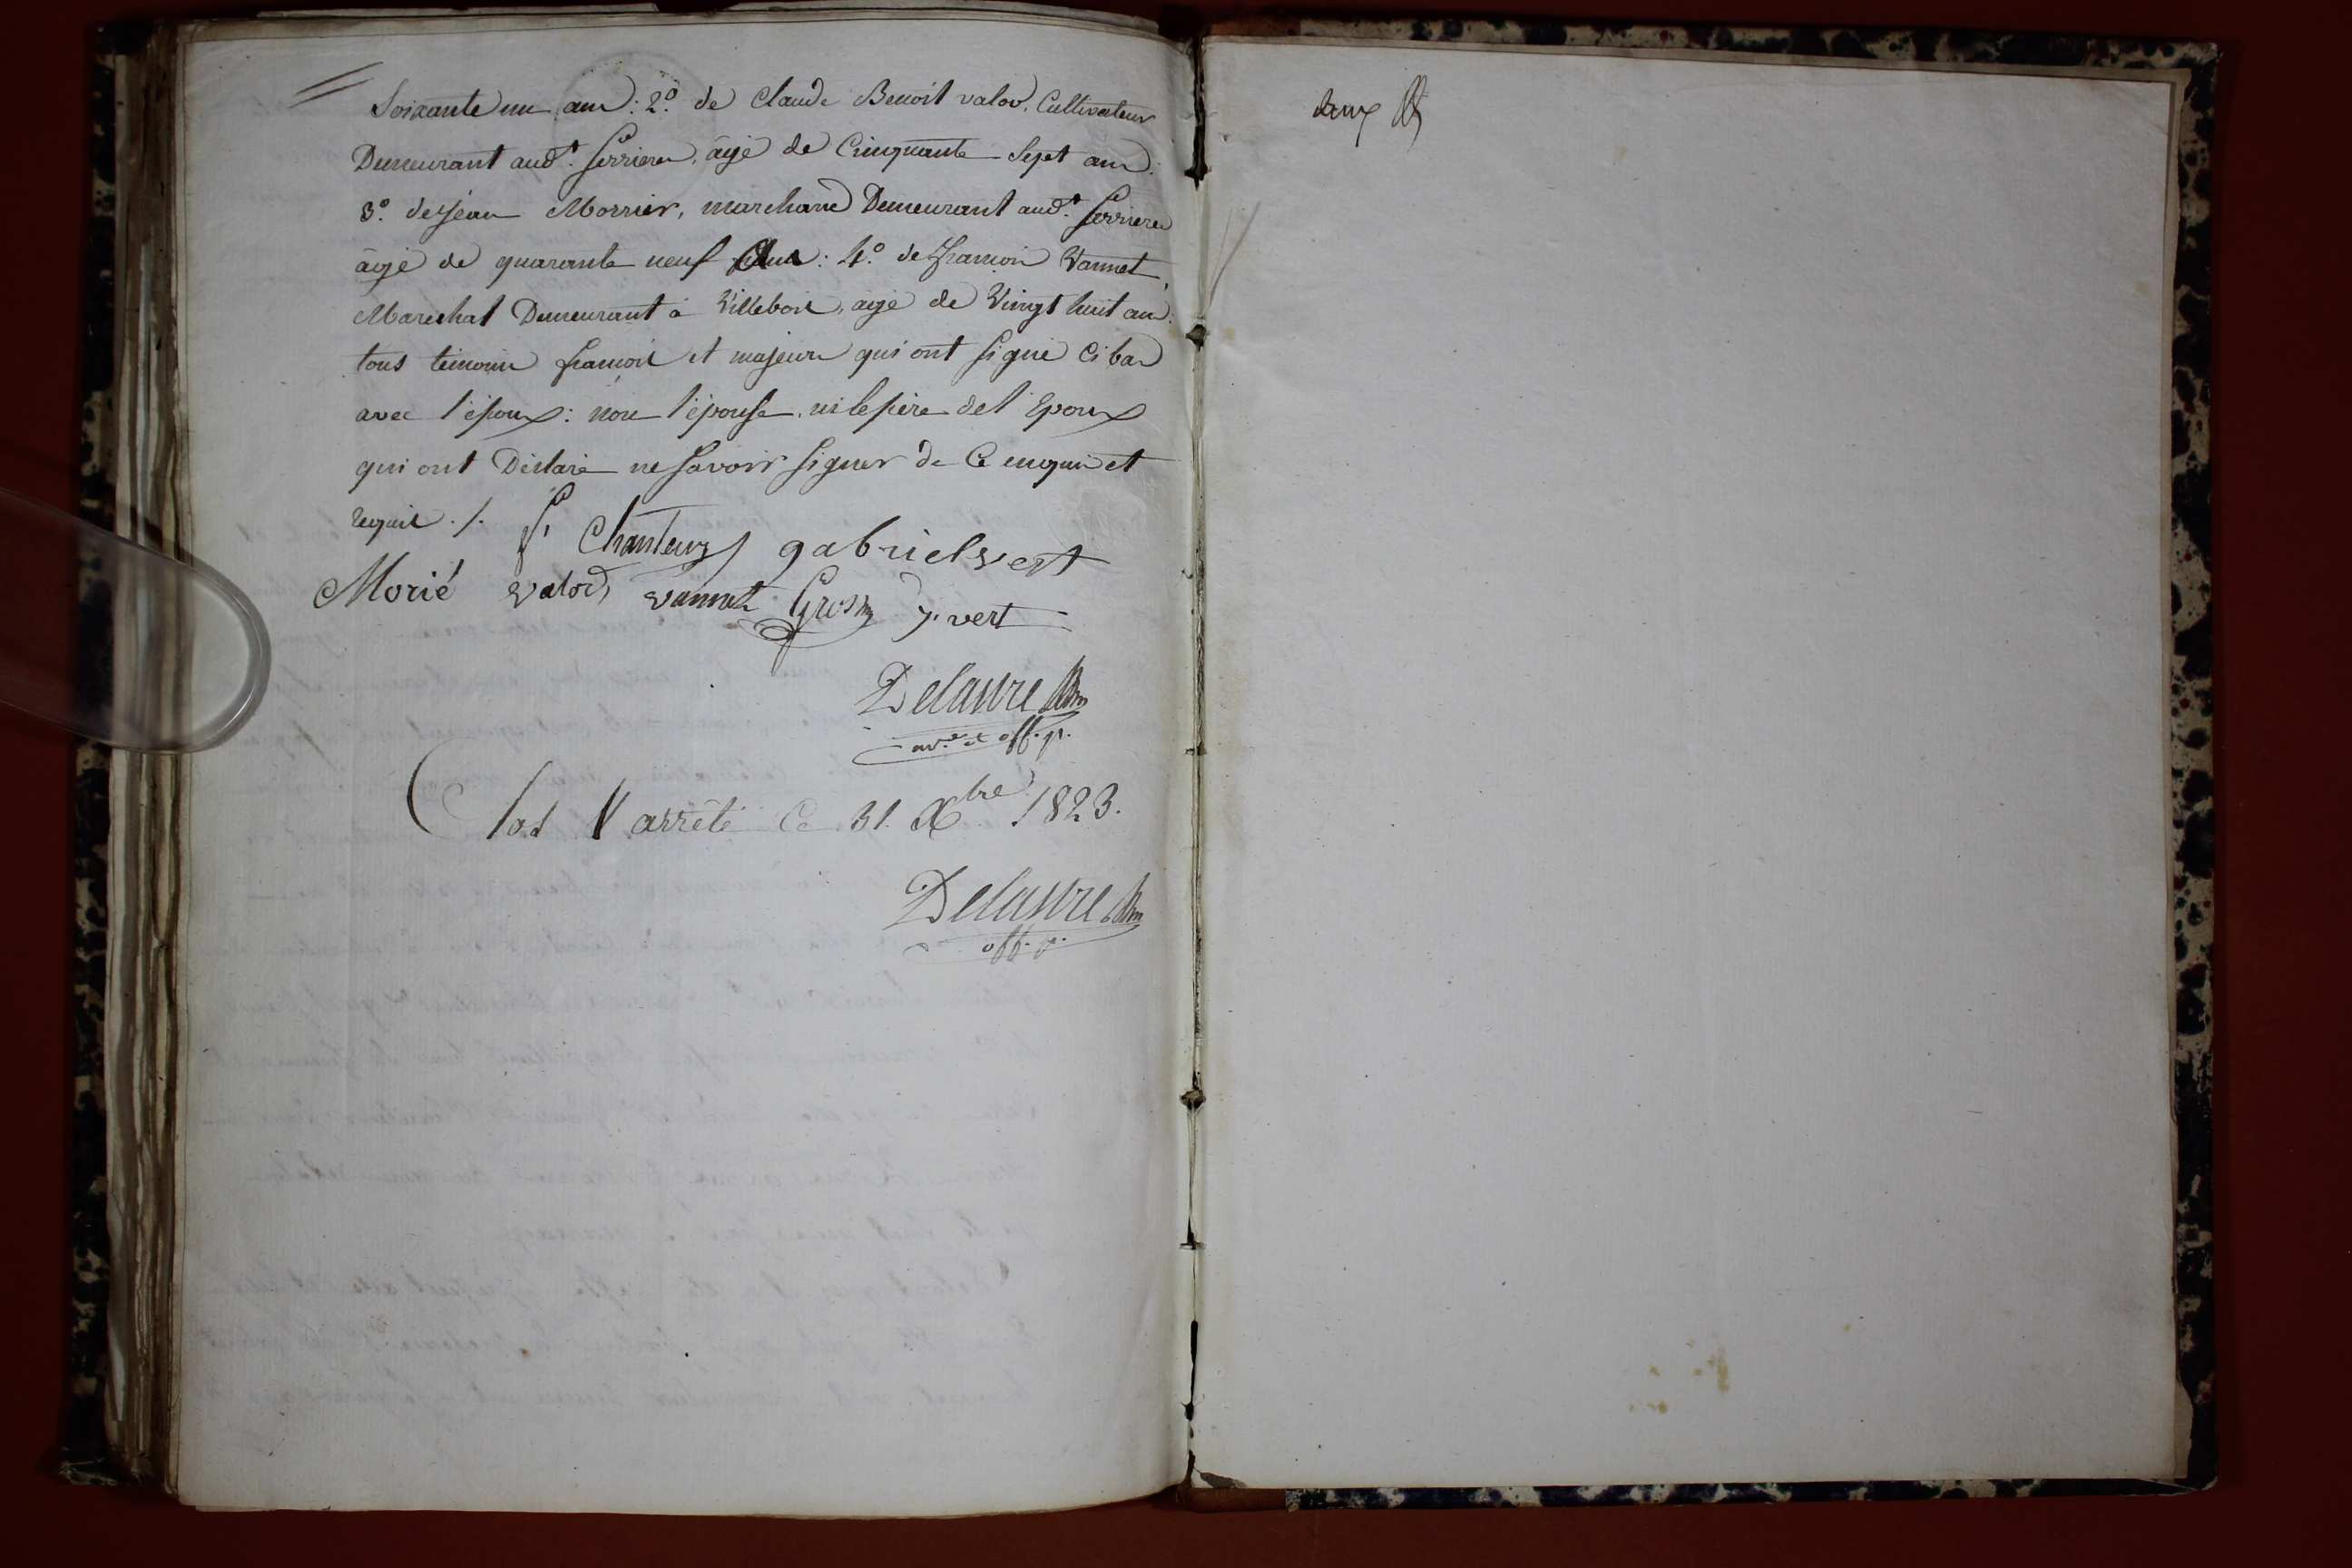 Soixante un ans: 2.º de Claude Benoit valod, Cultivateur
Demeurant aud.t Serrieres, âgé de Cinquante Sept ans:
3.º de Jean Morrier, marchand Demeurant aud.t Serrieres
âgé de quarante neuf ans: 4.º de françois Vannet,
Marechal Demeurant à Villebois, âgé de Vingt huit ans:
tous témoins françois et majeurs qui ont signé ci bas
avec l'époux: non l'épouse, ni le père de l'Epoux
qui ont Déclaré ne savoir signer de ce enquis et
requis ./.
Chanteur gabriel vert
Morié valod vannet Gros J. vert
Delaure
off. p.
Clos & arrêté Ce 31. Xbre 1823.
Delaure
off. p.
deux